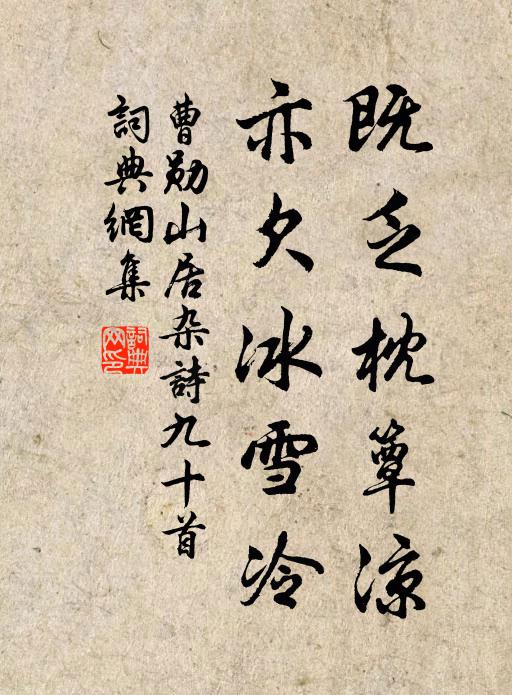 既乏枕簟凉
亦欠冰雪冷
曹勋山居杂詩九十首
詞典網集
詞典網印